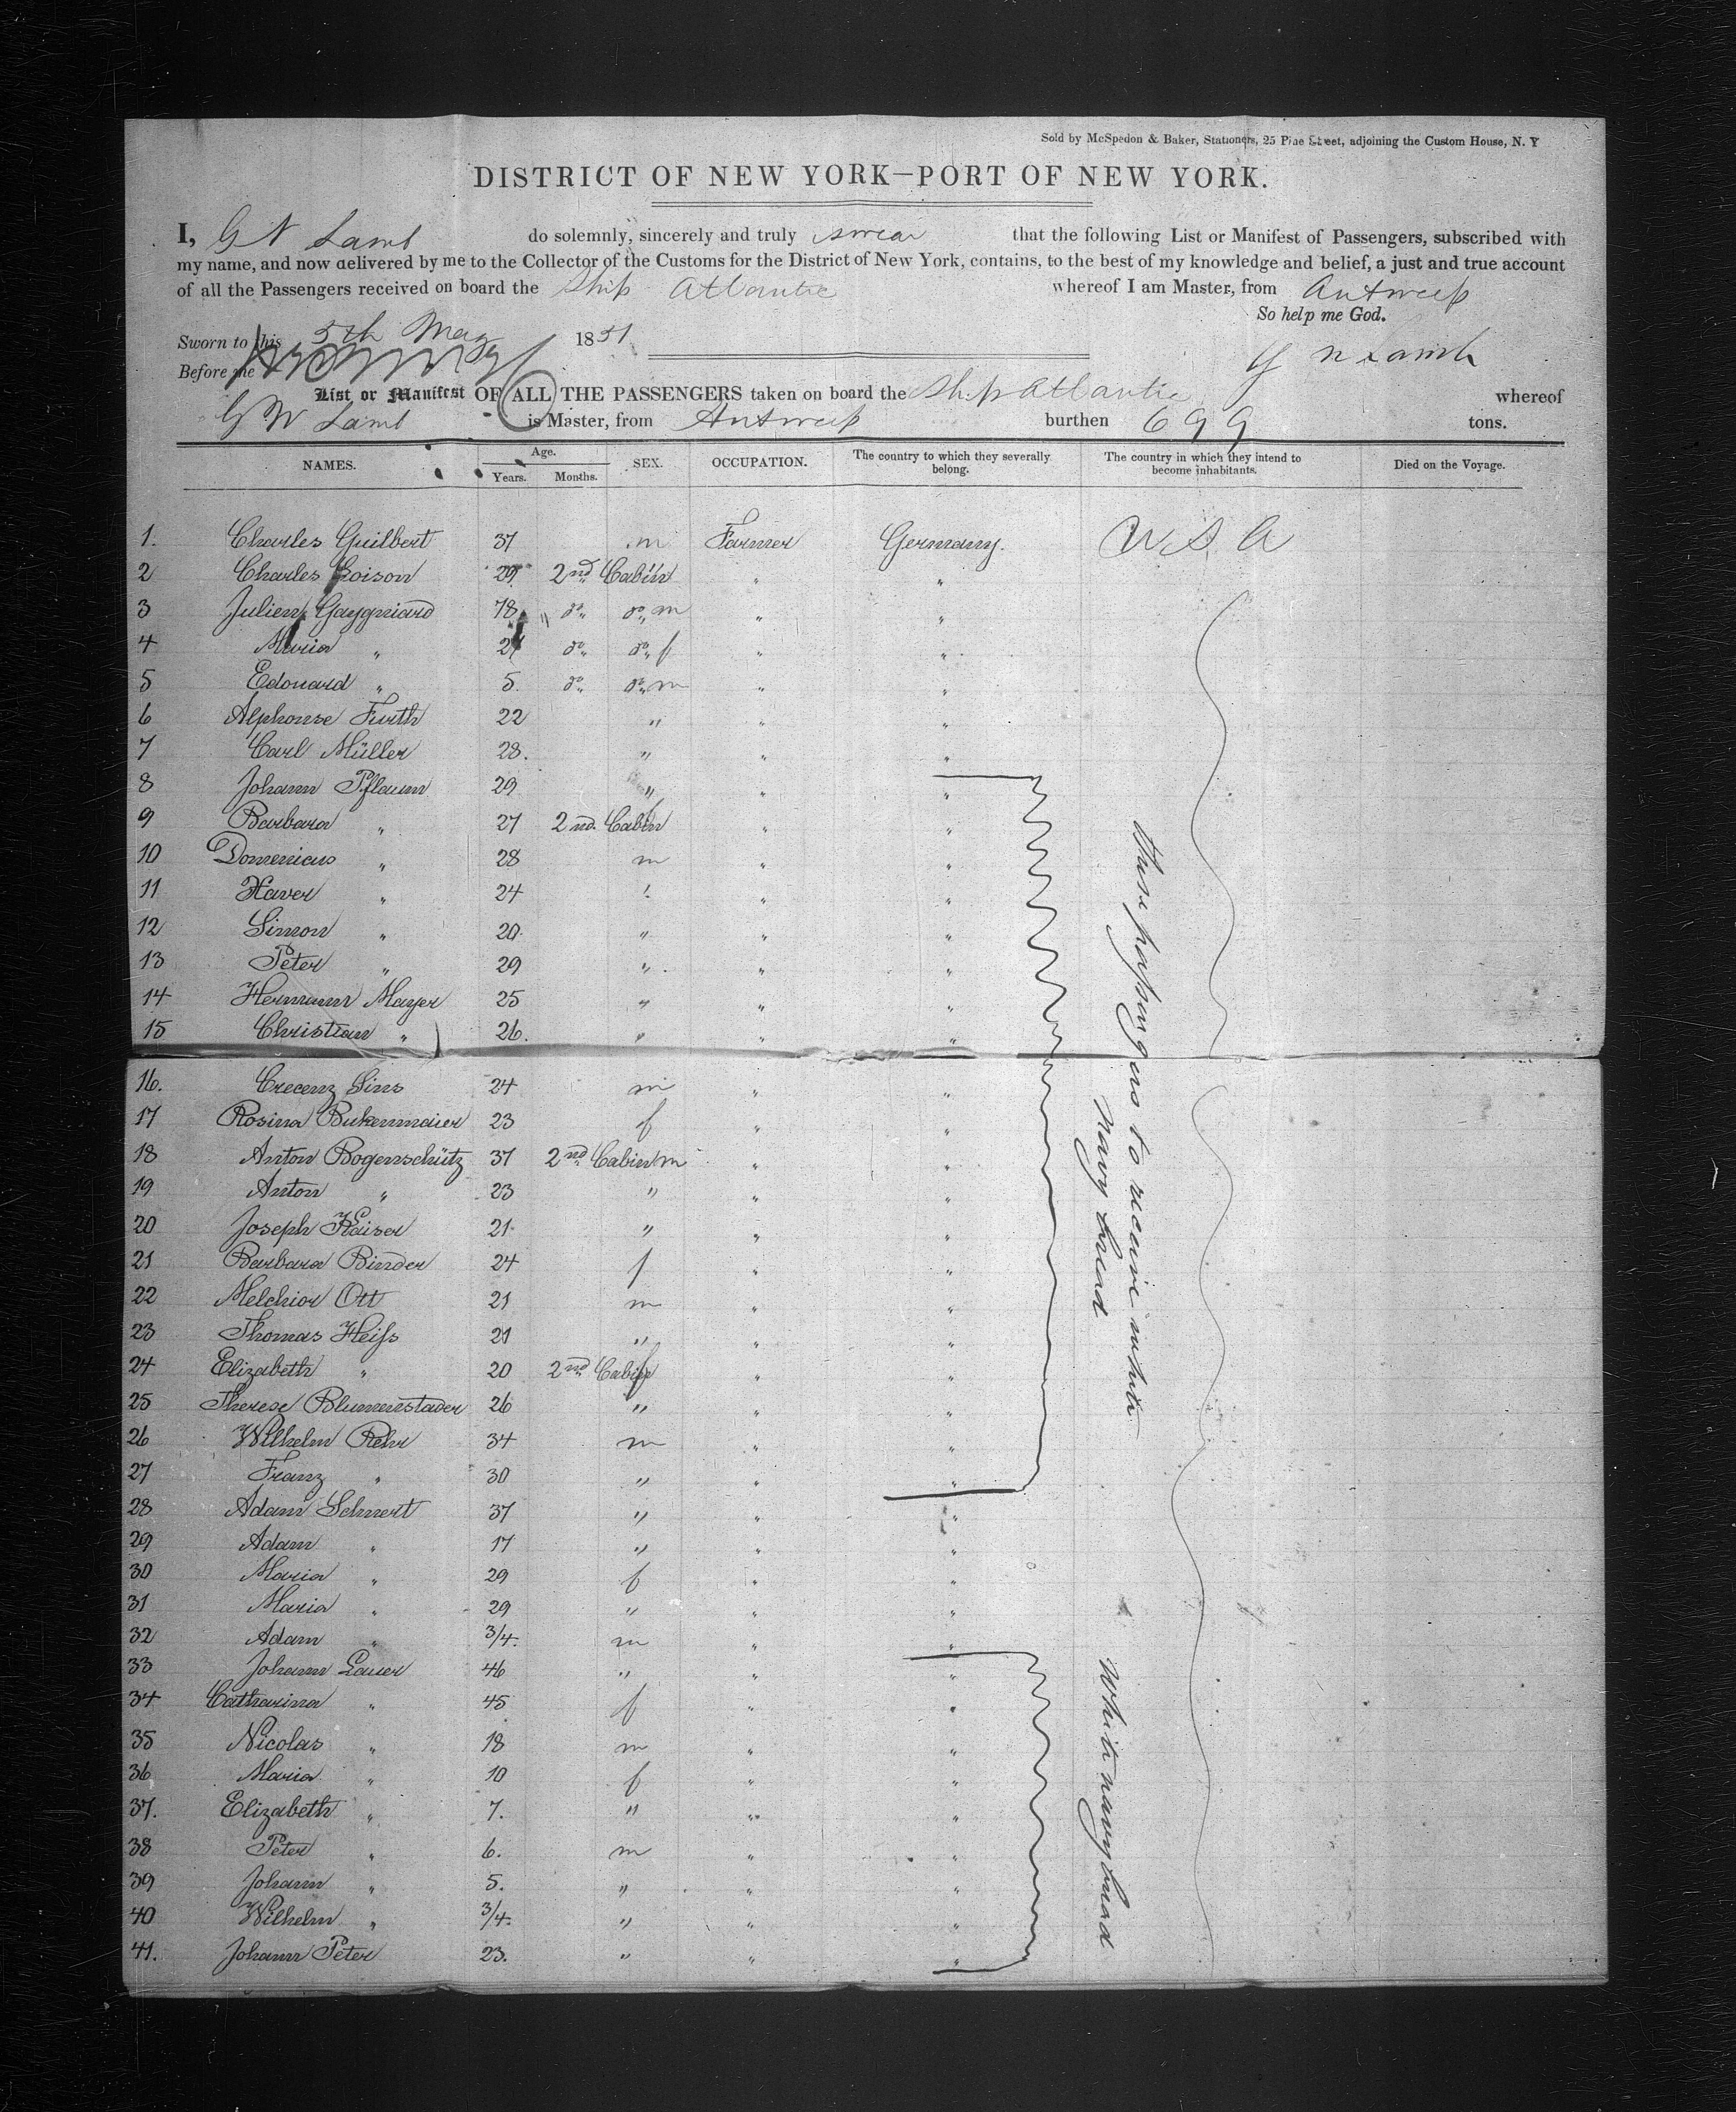 Sold by McSpedon & Baker, Stationers, 25 Pine Street, adjoining the Custom House, N. Y
DISTRICT OF NEW YORK—PORT OF NEW YORK.
I, G N Lamb do solemnly, sincerely and truly swear that the following List or Manifest of Passengers, subscribed with
my name, and now delivered by me to the Collector of the Customs for the District of New York, contains, to the best of my knowledge and belief, a just and true account
of all the Passengers received on board the Ship Atlantic whereof I am Master, from Antwerp
So help me God.
Sworn to this 5th May 1851
G N Lamb
Before me
List or Manifest OF ALL THE PASSENGERS taken on board the Ship Atlantic whereof
G W Lamb is Master, from Antwerp burthen 699 tons.
NAMES. Age. Years. Months. SEX. OCCUPATION. The country to which they severally belong. The country in which they intend to become inhabitants. Died on the Voyage.
1. Charles Guilbert 37 m Farmer Germany. U S A
2 Charles Loison 29. 2nd Cabin " "
3 Julien Gaygniard 78 " do " do " m " "
4 Maria " 24 do " do " f " "
5 Edouard " 5. do " do " m " "
6 Alphonse Furth 22 " " "
7 Carl Müller 28. " " "
8 Johann Pflaum 29 " " "
9 Barbara " 27 2nd. Cabin f " "
10 Domenicus " 28 m " "
11 Xaver " 24 " " "
12 Simon " 20 " " "
13 Peter " 29 " " "
14 Hermann Mayer 25 " " "
15 Christian " 26. " " "
16. Crecenz Sins 24 m " "
17 Rosina Bukenmaier 23 f " "
18 Anton Bogenschütz 37 2nd Cabin m " "
19 Anton " 23 " " "
20 Joseph Kaiser 21 " " "
21 Barbara Binder 24 f " "
22 Melchior Ott 21 m " "
23 Thomas Heiss 21 " " "
24 Elizabeth " 20 2nd Cabin f " "
25 Therese Blumenstader 26 " " "
26 Wilhelm Rehr 34 m " "
27 Franz " 30 " " "
these passengers to receive white
navy bread
28 Adam Schnert 37 " " "
29 Adam " 17 " " "
30 Maria " 29 f " "
31 Maria " 29 " " "
32 Adam " 3/4. m " "
33 Johann Lauer 46 " " "
34 Catharina " 45 f " "
35 Nicolas " 18 m " "
36 Maria " 10 f " "
37. Elizabeth " 7. " " "
38 Peter " 6. m " "
39 Johann " 5. " " "
40 Wilhelm " 3/4. " " "
41. Johann Peter 23. " " "
white navy bread